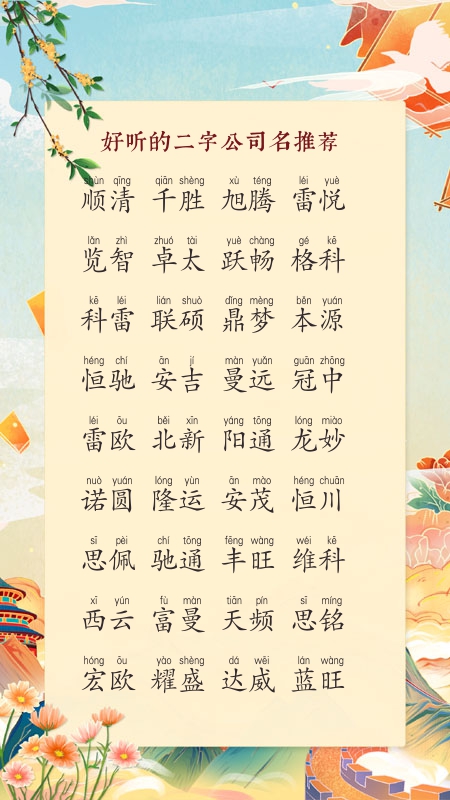 好听的二字公司名推荐
shùn qīng qiān shèng xù téng léi yuè
顺清 千胜 旭腾 雷悦
lǎn zhì zhuó tài yuè chàng gé kē
览智 卓太 跃畅 格科
kē léi lián shuò dǐng mèng běn yuán
科雷 联硕 鼎梦 本源
héng chí ān jí màn yuǎn guān zhōng
恒驰 安吉 曼远 冠中
léi ōu běi xīn yáng tōng lóng miào
雷欧 北新 阳通 龙妙
nuò yuán lóng yùn ān mào héng chuān
诺圆 隆运 安茂 恒川
sī pèi chí tōng fēng wàng wéi kē
思佩 驰通 丰旺 维科
xī yún fù màn tiān pín sī míng
西云 富曼 天频 思铭
hóng ōu yào shèng dá wēi lán wàng
宏欧 耀盛 达威 蓝旺